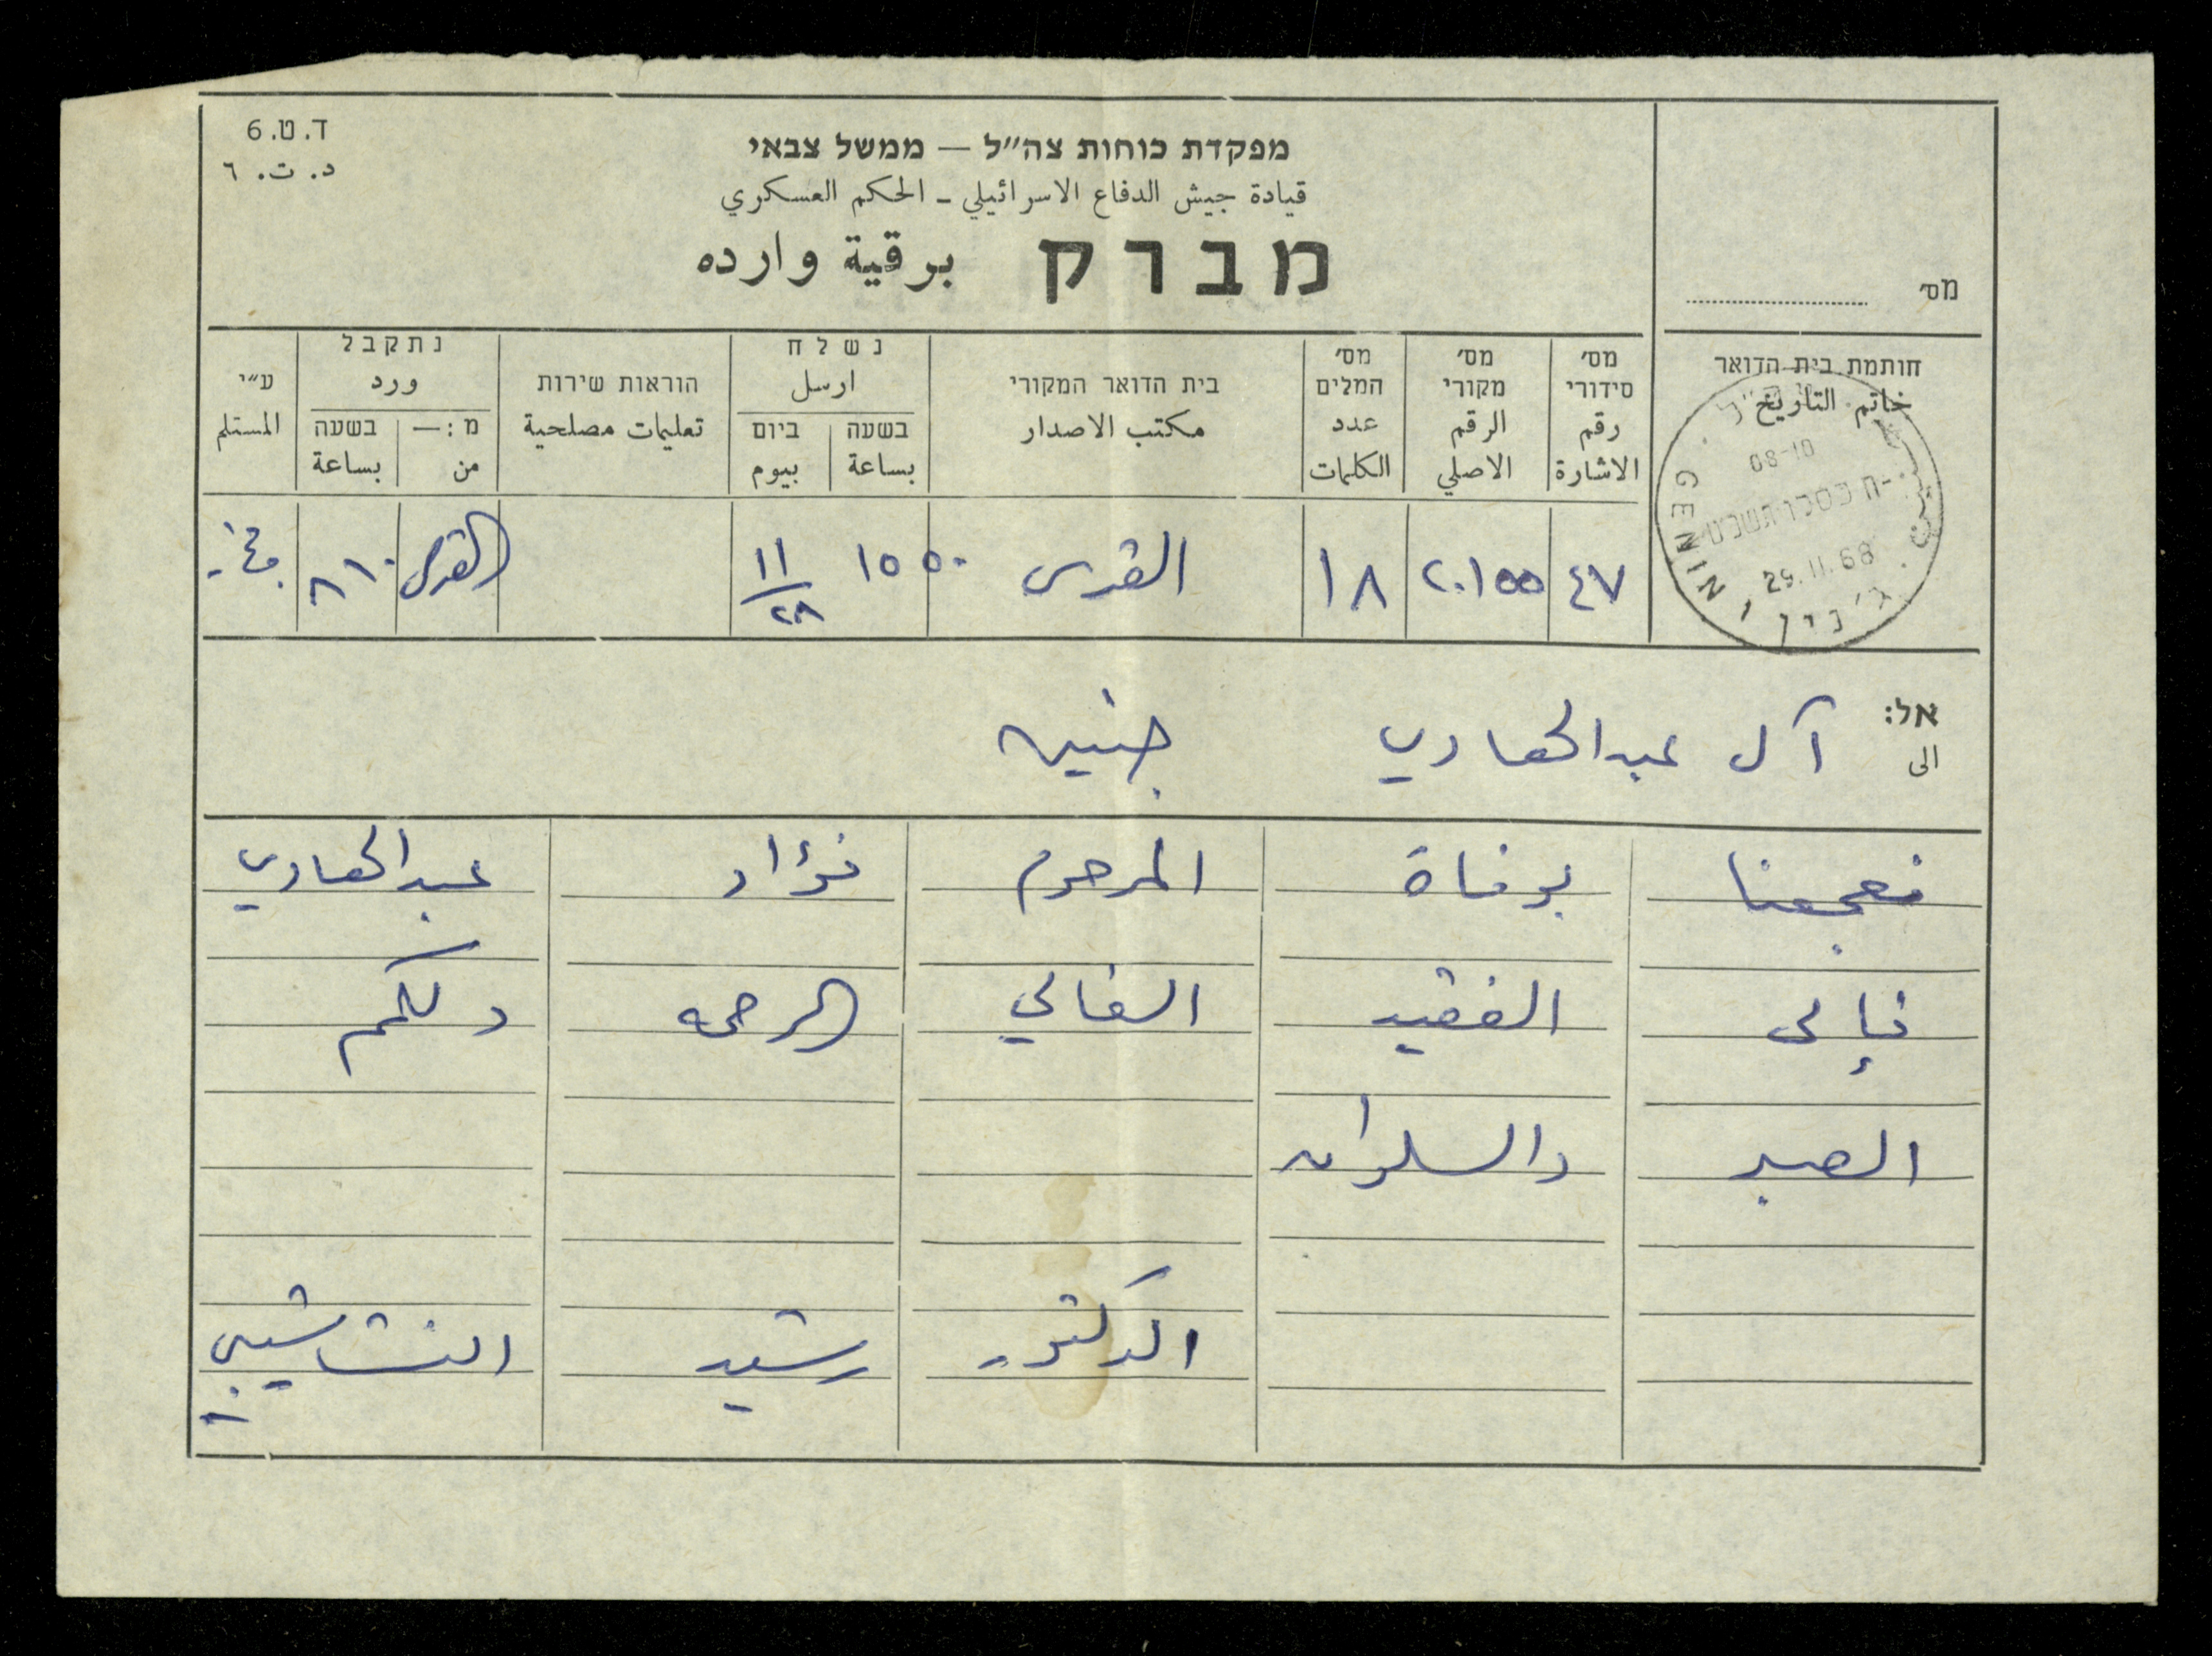 ד.ט.6
د. ت. ٦
מפקדת כוחות צה״ל — ממשל צבאי
قيادة جيش الدفاع الاسرائيلي - الحكم العسكري
מברק برقية وارده
מס׳
חותמת בית הדואר
خاتم التاريخ
מס׳ סידורי رقم الاشارة
מס׳ מקורי الرقم الاصلي
מס׳ המלים عدد الكلمات
בית הדואר המקורי مكتب الاصدار
נשלח ارسل
בשעה بساعة
ביום بيوم
הוראות שירות تعليمات مصلحية
נתקבל ورد
מ:— من
בשעה بساعة
ע״י المستلم
08-10
29.11.68
GENIN ג׳נין جنين
٤٧ ٢٠١٥٥ ١٨ القدس ١٥٥٠ ١١/٢٨ القدس ٨١٠
אל:
الى
آل عبدالهادي جنين
فجعنا بوفاة المرحوم فؤاد عبدالهادي
فإلى الفقيد الغالي الرحمه ولكم
الصبر والسلوان
الدكتور رشيد النشاشيبي